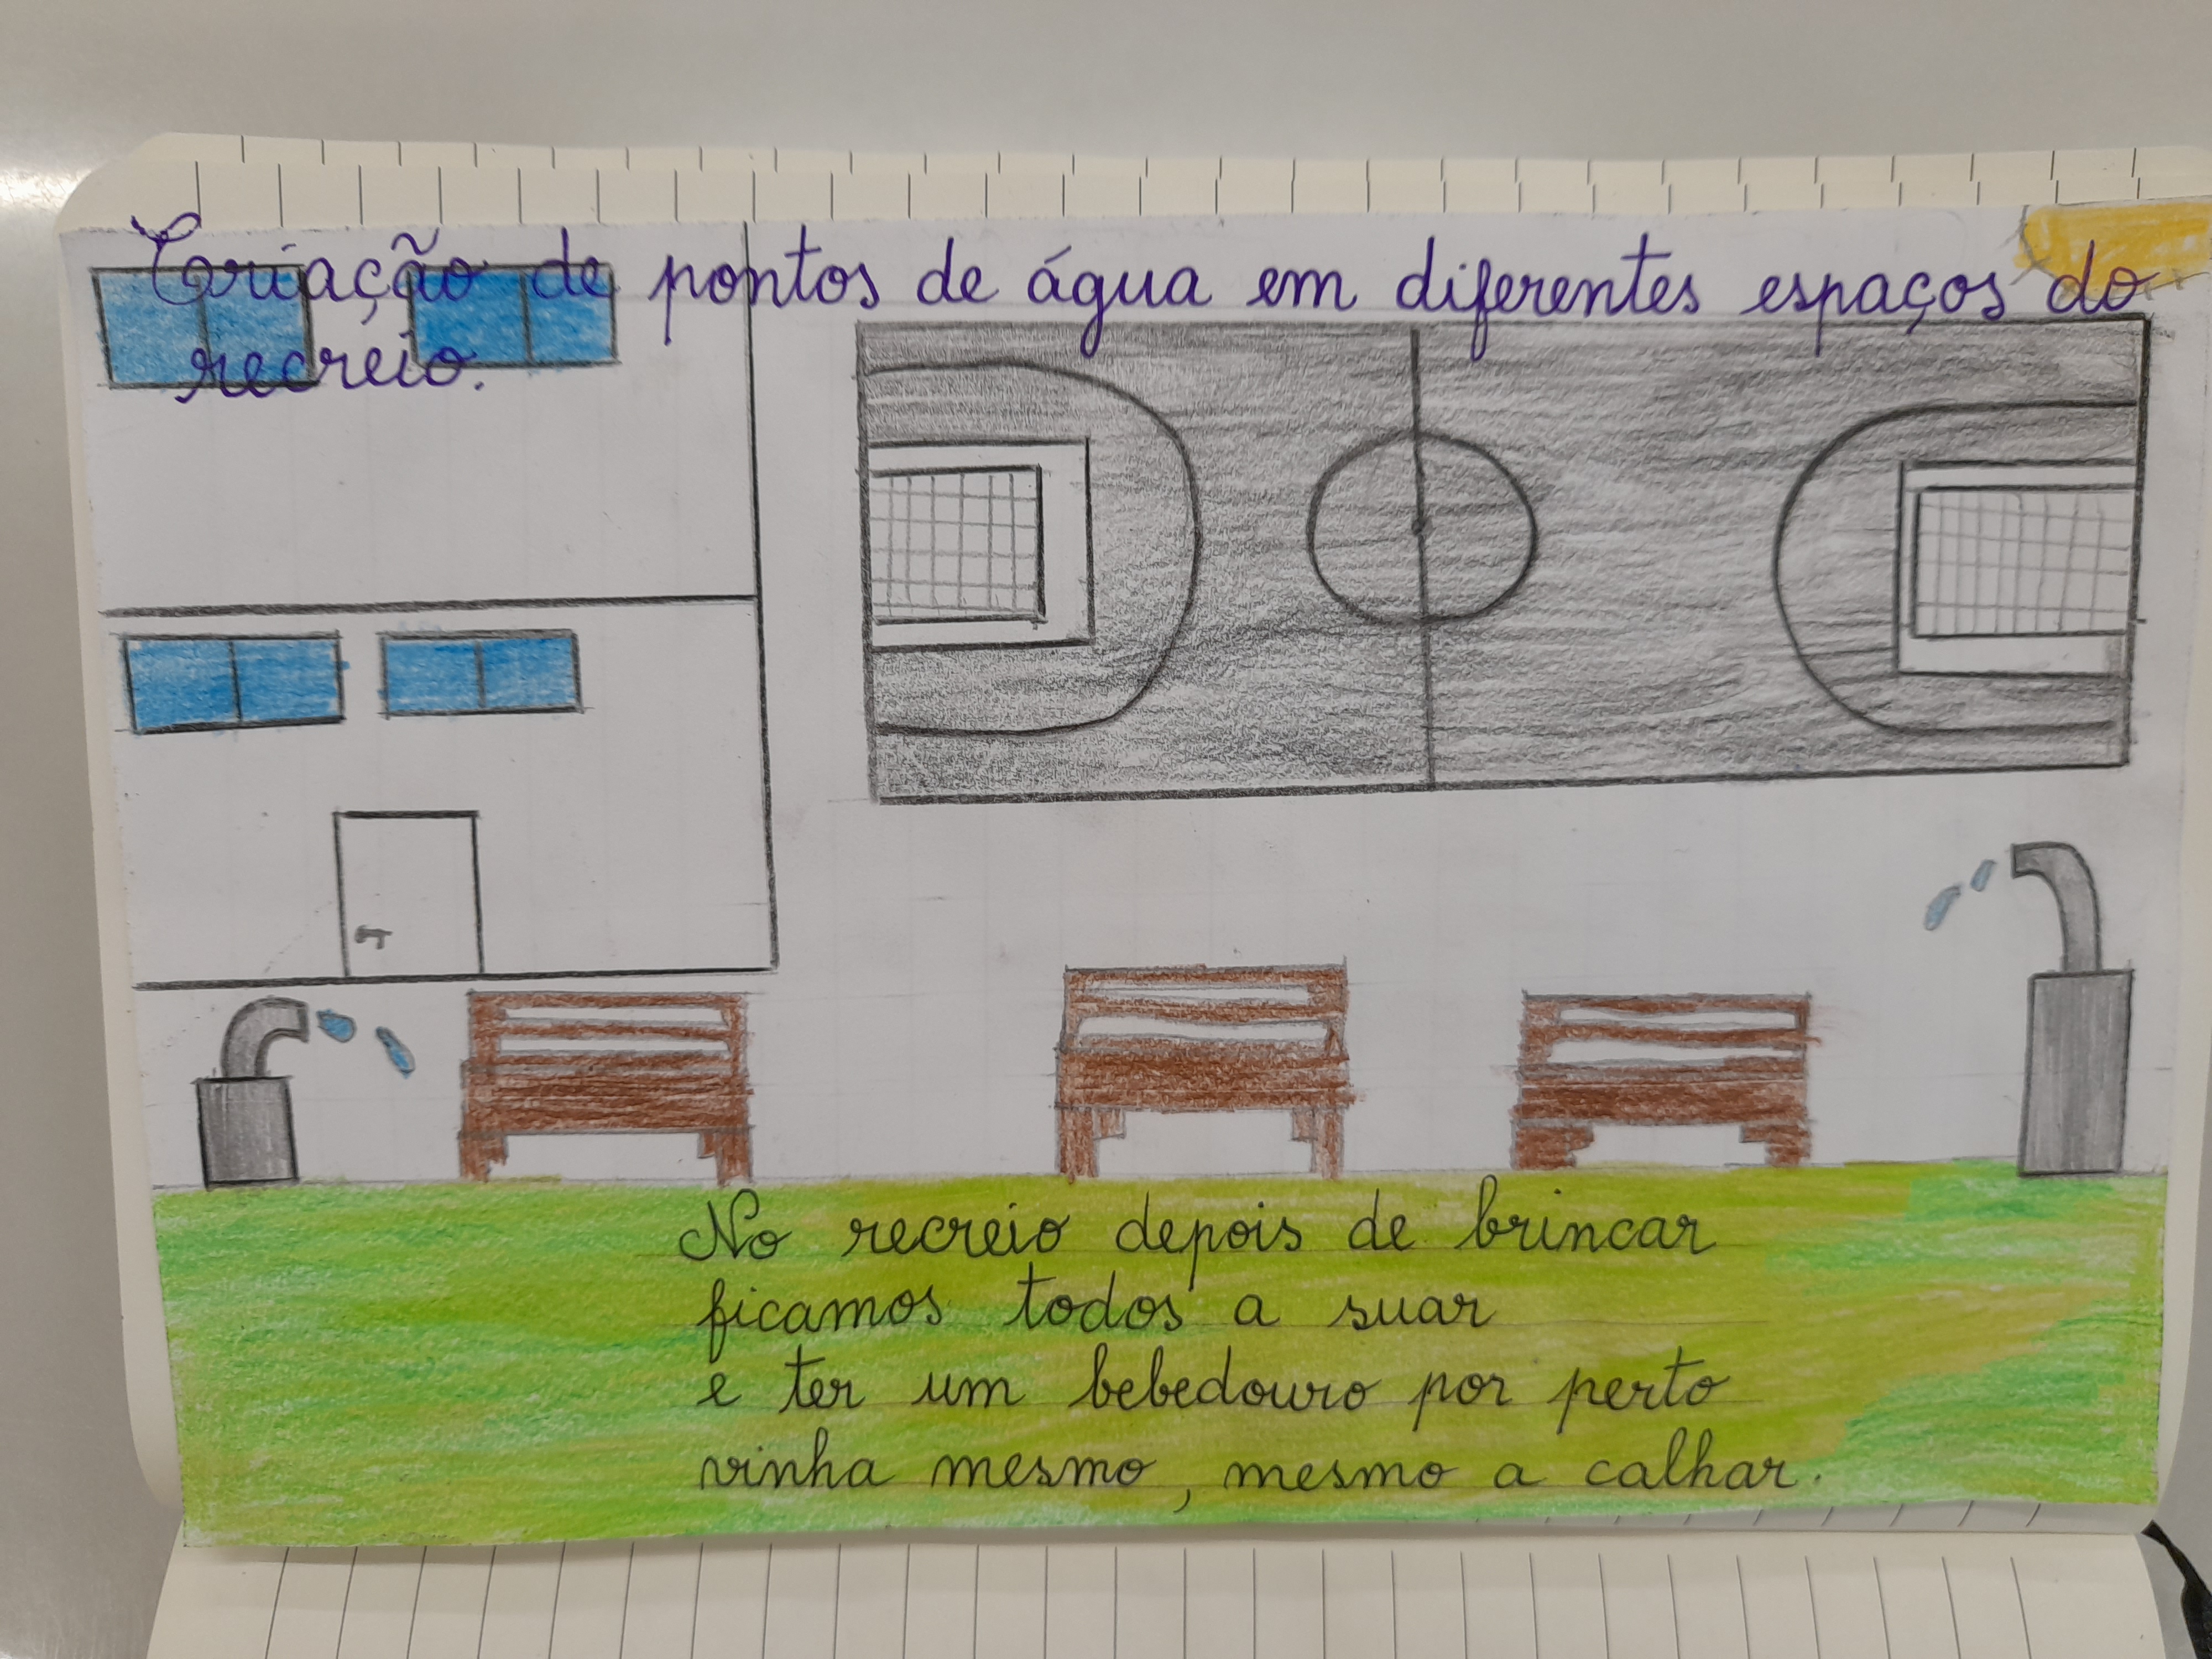 Criação de pontos de água em diferentes espaços do
recreio.
No recreio depois de brincar
ficamos todos a suar
e ter um bebedouro por perto
vinha mesmo, mesmo a calhar.